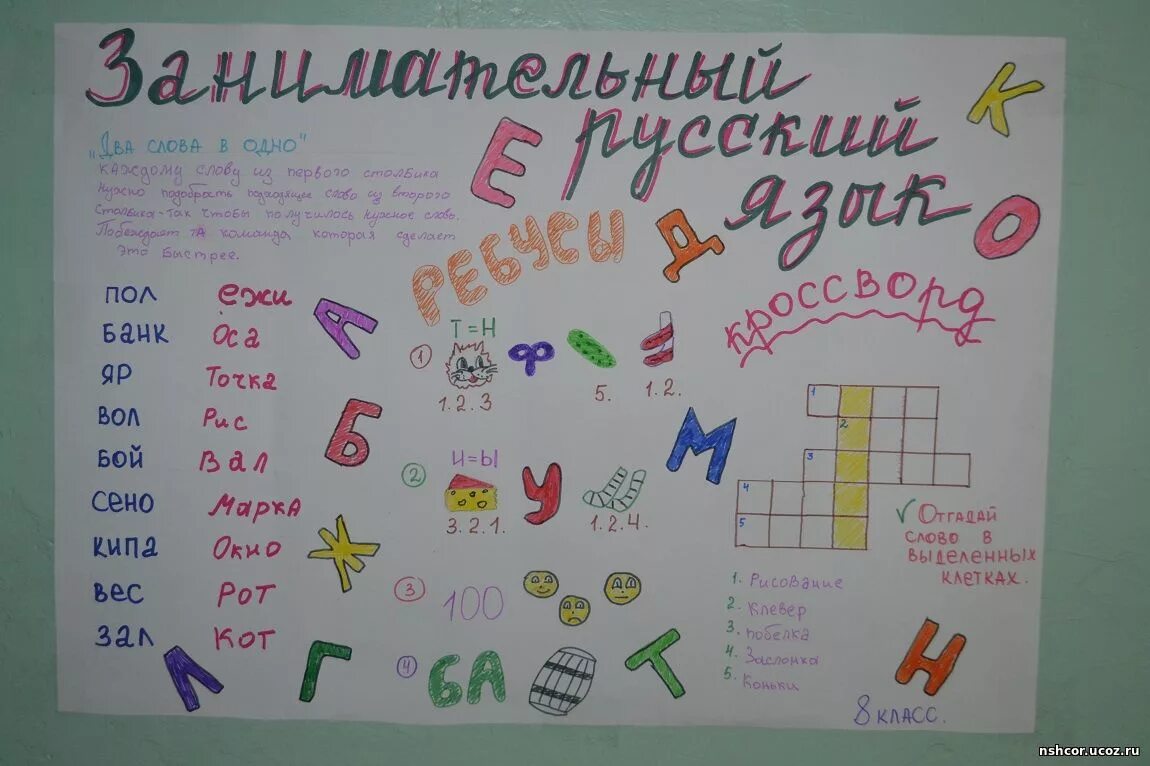 Занимательный
русский
язык
„Два слова в одно"
каждому слову из первого столбика
Нужно подобрать подходящее слово из второго
Столбика-так чтобы получилось нужное слово.
Побеждает та команда которая сделает
Это Быстрее.
пол ежи
банк Оса
яр Точка
вол Рис
бой Вал
сено Марка
кипа Окно
вес Рот
зал Кот
Ребусы
1 Т=Н
Ф
1.2.3
5.
1.2.
2 И=Ы
У
3.2.1.
1.2.4.
3 100
4 БА
кроссворд
1
2
3
4
5
✓ Отгадай
слово в
выделенных
клетках.
1. Рисование
2. Клевер
3. побелка
4. Заслонка
5. Коньки
8 класс.
К
Е
Д
О
А
Б
М
Ж
Л
Г
Т
Н
nshcor.ucoz.ru